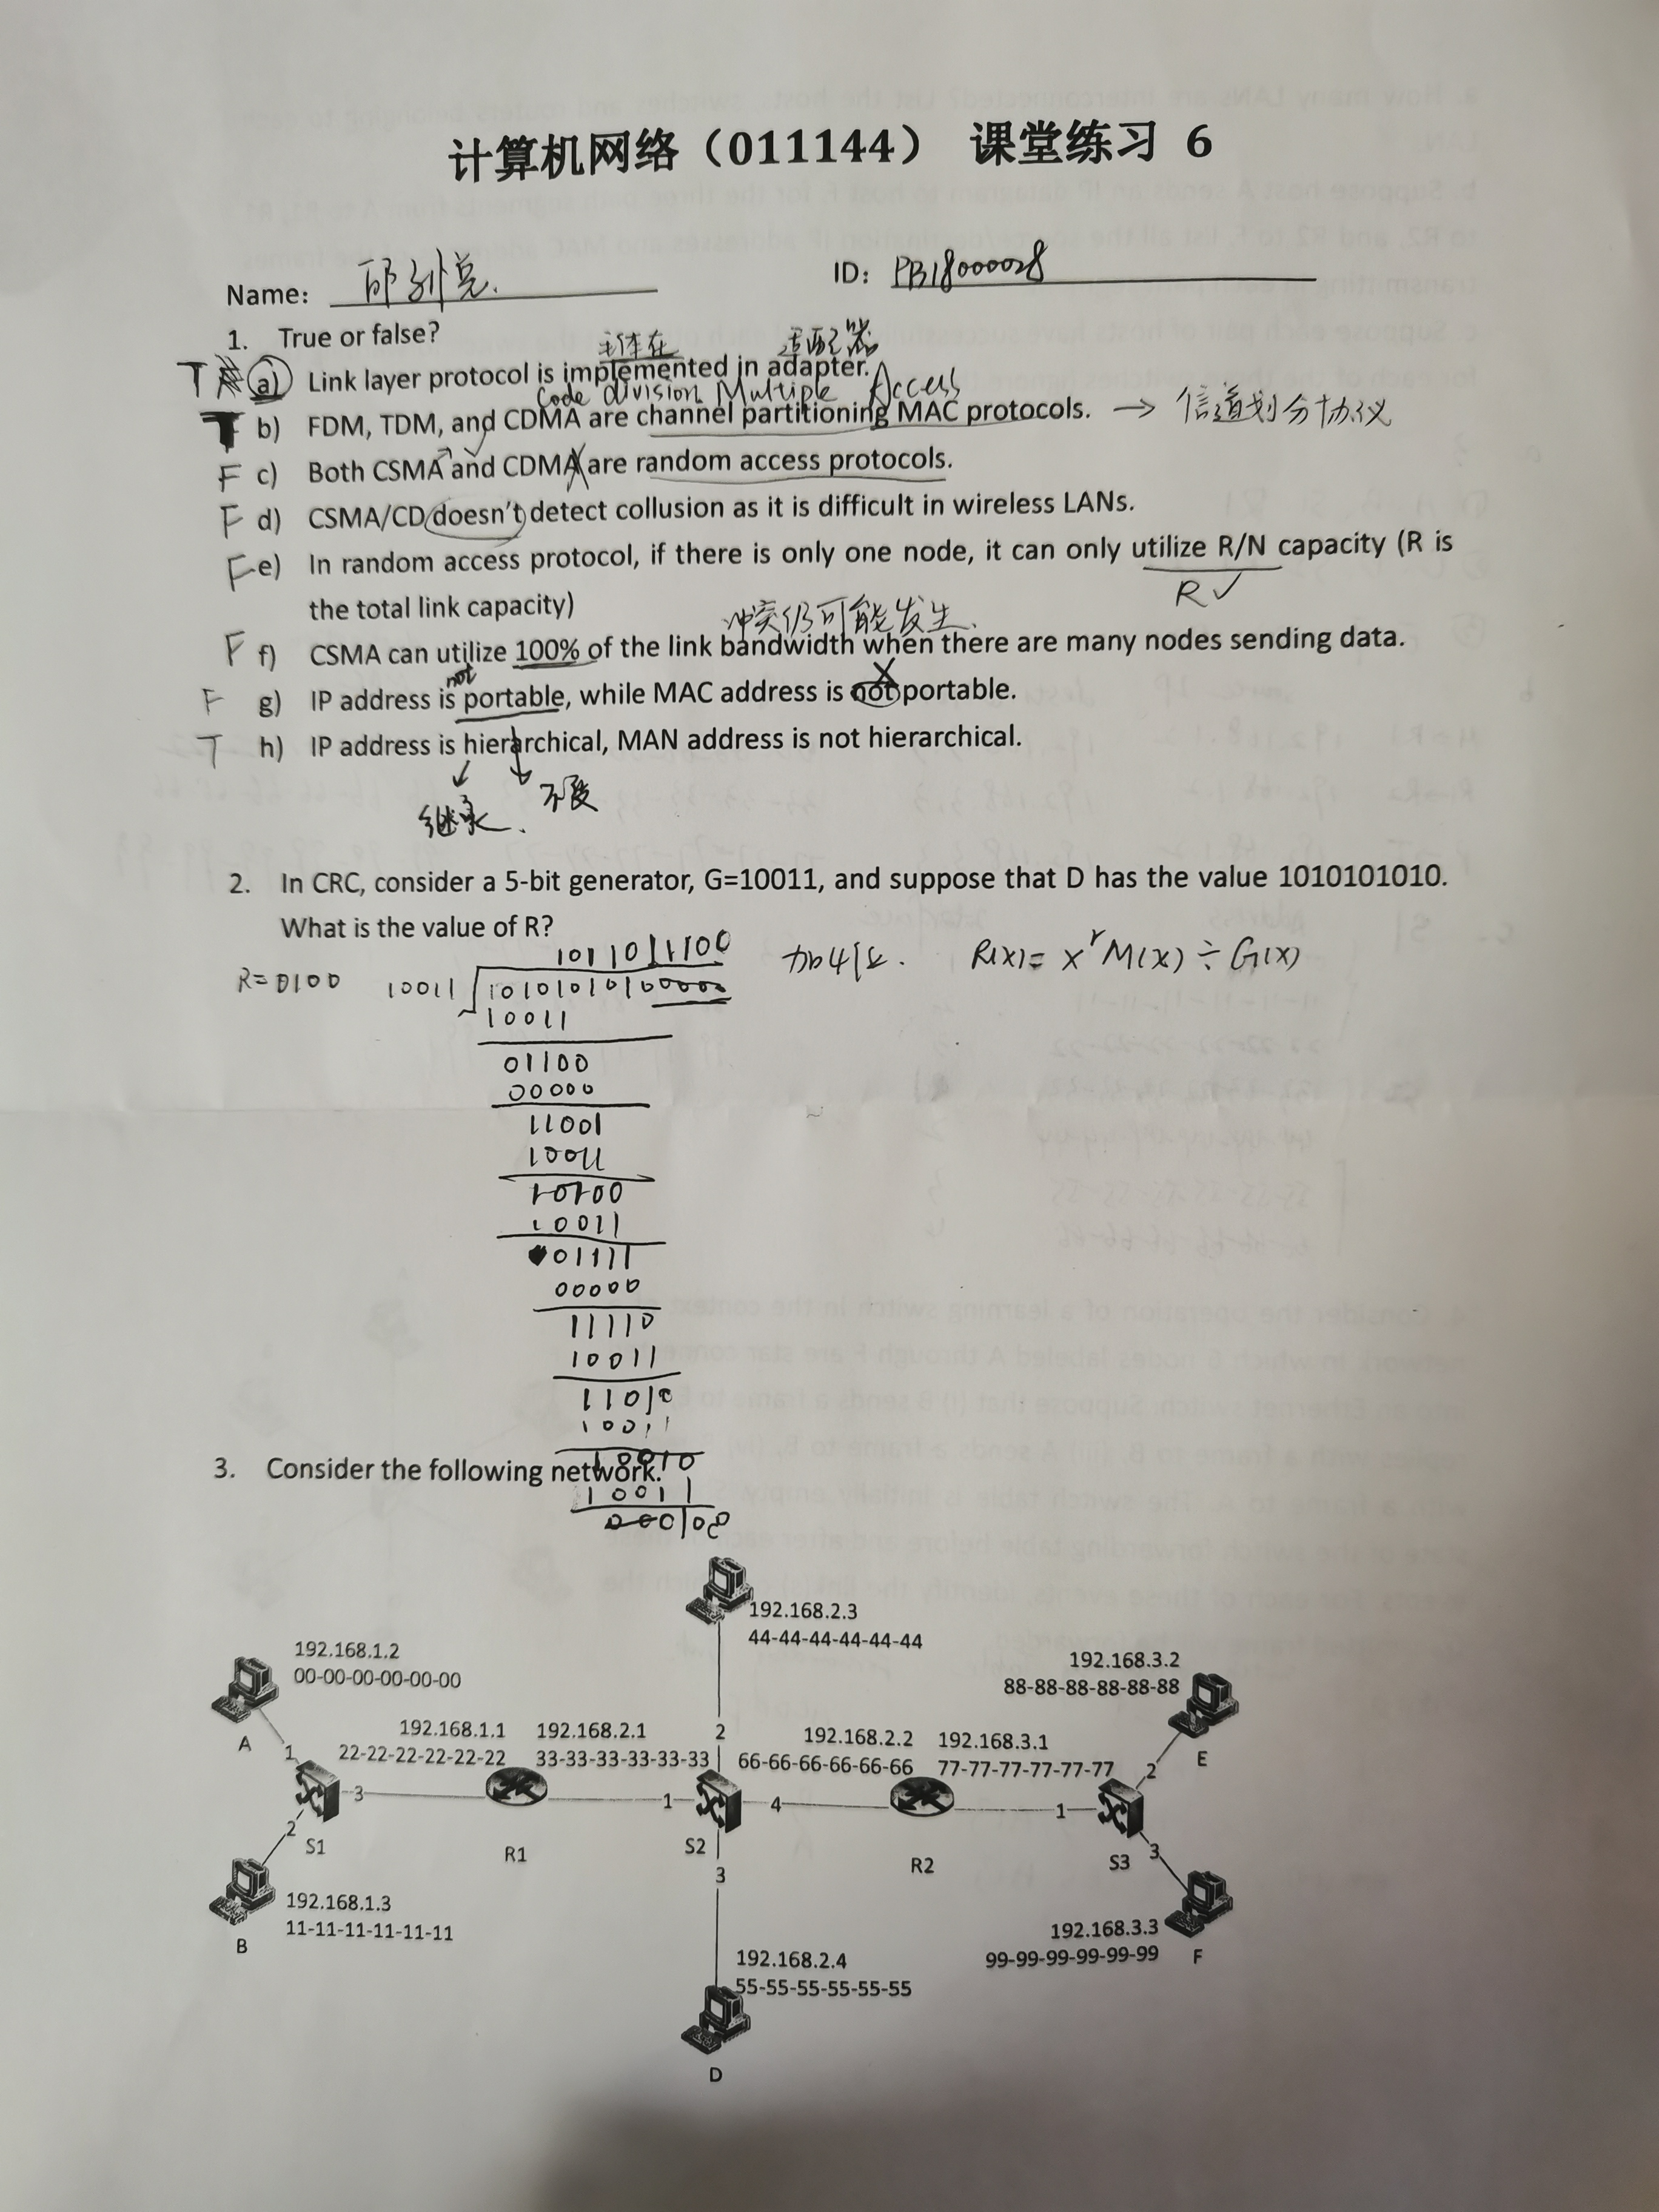 计算机网络（011144） 课堂练习 6
Name: 邱
ID: PB18000028
1. True or false?
主 存在 适配器
T a) Link layer protocol is implemented in adapter.
Code division Multiple Access
T b) FDM, TDM, and CDMA are channel partitioning MAC protocols. → 信道划分协议
F c) Both CSMA and CDMA are random access protocols.
F d) CSMA/CD doesn't detect collusion as it is difficult in wireless LANs.
F e) In random access protocol, if there is only one node, it can only utilize R/N capacity (R is
R✓
the total link capacity)
冲突仍可能发生.
F f) CSMA can utilize 100% of the link bandwidth when there are many nodes sending data.
not
F g) IP address is portable, while MAC address is not portable.
T h) IP address is hierarchical, MAN address is not hierarchical.
继承. 不变
2. In CRC, consider a 5-bit generator, G=10011, and suppose that D has the value 1010101010.
What is the value of R?
1011011100 加4位. R(x)= x^r M(x) ÷ G(x)
R=0100 10011 10101010100000
10011
01100
00000
11001
10011
10100
10011
01111
00000
11110
10011
11010
10011
10010
3. Consider the following network.
10011
000100
192.168.2.3
44-44-44-44-44-44
192.168.1.2
00-00-00-00-00-00
192.168.3.2
88-88-88-88-88-88
A
192.168.1.1 192.168.2.1 2 192.168.2.2 192.168.3.1
1 22-22-22-22-22-22 33-33-33-33-33-33 66-66-66-66-66-66 77-77-77-77-77-77 2 E
3 1 4 1
2 S1 R1 S2 R2 S3 3
3
192.168.1.3
11-11-11-11-11-11
B
192.168.3.3
99-99-99-99-99-99 F
192.168.2.4
55-55-55-55-55-55
D